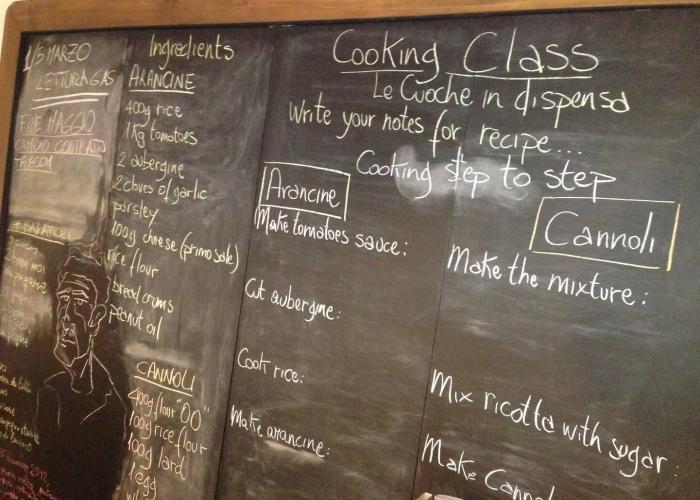 1/5 MARZO
LETTURA GAS
FINE MAGGIO
CAMBIO CONTRATTO
TELECOM
Ingredients
ARANCINE
400g rice
1 Kg tomatoes
2 aubergine
2 cloves of garlic
parsley
100g cheese (primo sale)
rice flour
bread crums
peanut oil
CANNOLI
400g flour "00"
100g rice flour
100g lard
1 egg
Cooking Class
Le Cuoche in dispensa
Write your notes for recipe...
Cooking step to step
Arancine
Make tomatoes sauce:
Cut aubergine:
Cook rice:
Make arancine:
Cannoli
Make the mixture:
Mix ricotta with sugar:
Make